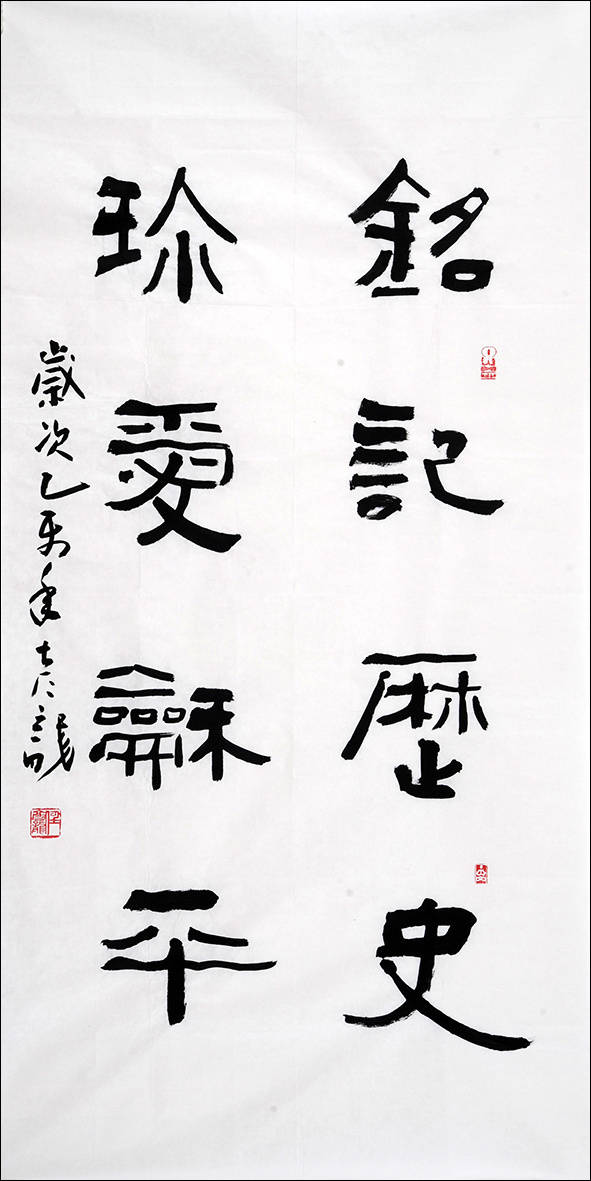 銘記歷史
珍愛龢平
歲次乙未年